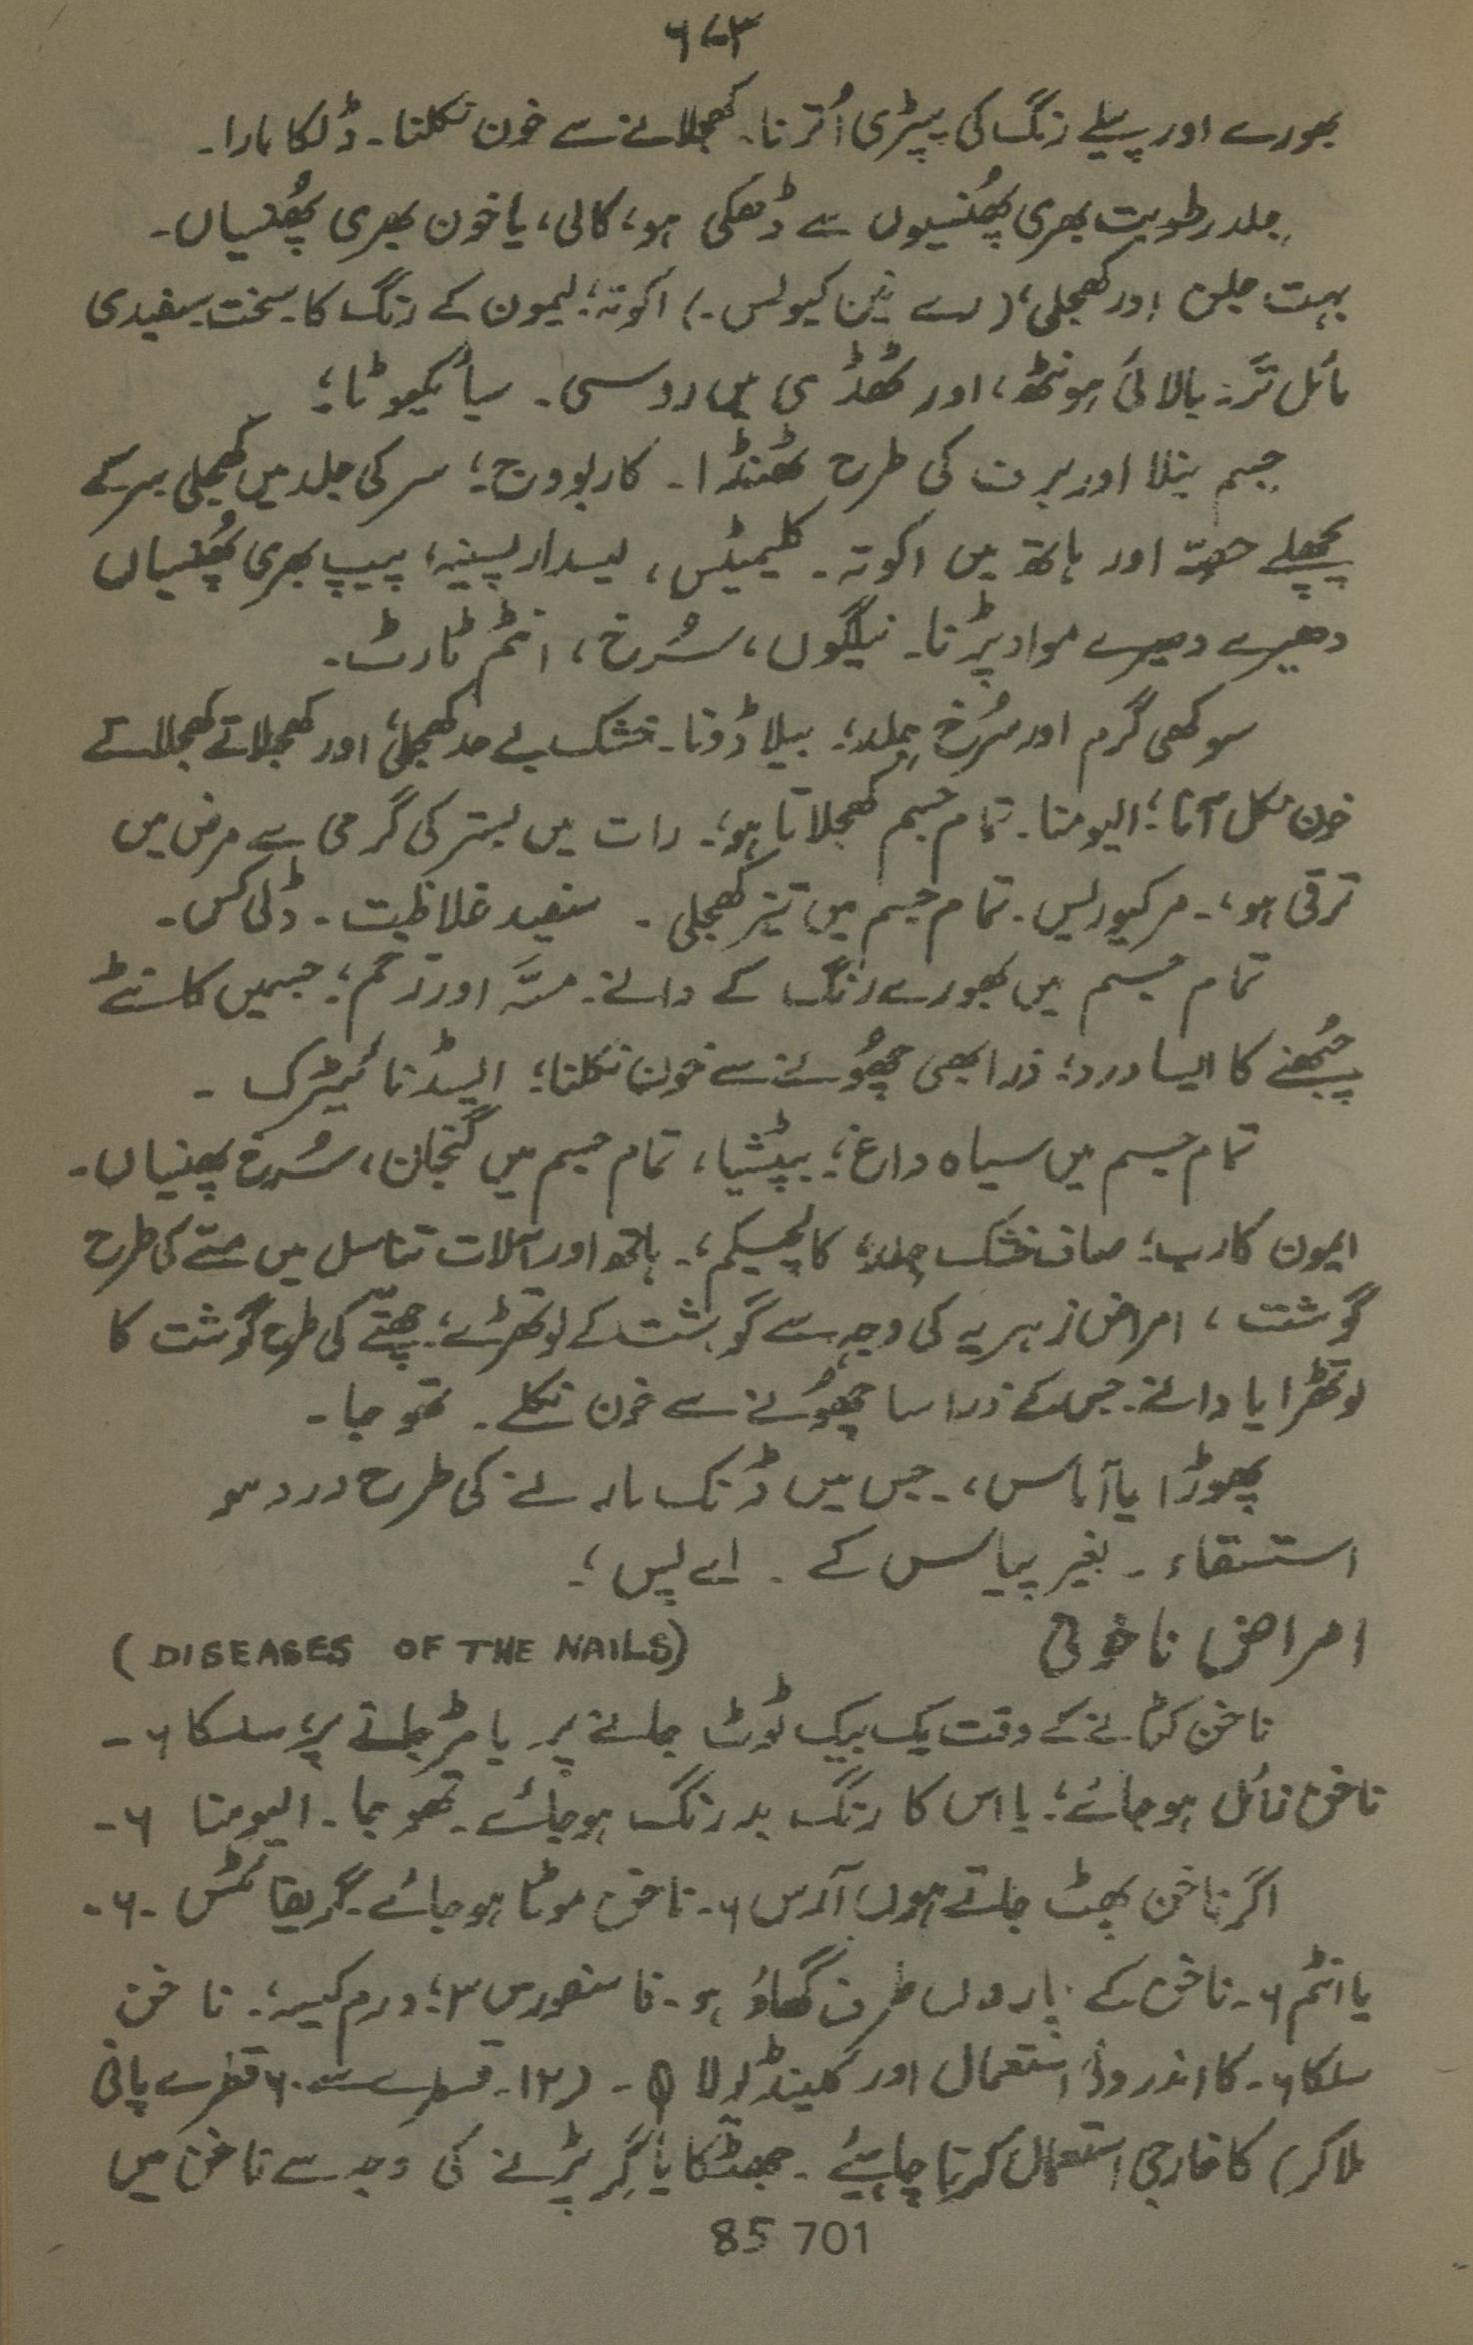 ۶۷۳
بھورے اور پیلے رنگ کی پپڑی اُترنا۔ کھجلانے سے خون نکلنا۔ ڈلکا مارا۔
جِلد رطوبت بھری پھُنسیوں سے ڈھکی ہو، کالی، یا خون بھری پھُنسیاں۔
بہت جلن اور کھجلی؛ (رے نین کیولس۔) اکوتہ؛ لیمون کے رنگ کا سخت سفیدی
مائل تر۔ بالائی ہونٹھ، اور ٹھڈی میں روسی۔ سیائیکیوٹا؛
جسم نیلا اور برف کی طرح ٹھنڈا۔ کاربووج؛ سر کی جلد میں کھجلی سر کے
پچھلے حصّہ اور ہاتھ میں اکوتہ۔ کلیمیٹس، لیسدار پسینہ، پیپ بھری پھُنسیاں
دھیرے دھیرے مواد پڑنا۔ نیلگوں، سُرخ، انٹم ٹارٹ۔
سوکھی گرم اور سُرخ جِلد؛ بیلاڈونا۔ خشک بے حد کھجلی؛ اور کھجلاتے کھجلاتے
خون نکل آنا؛ الیومنا۔ تمام جسم کھجلاتا ہو؛ رات میں بستر کی گرمی سے مرض میں
ترقی ہو؛ مرکیورلیس۔ تمام جسم میں تیز کھجلی۔ سفید غلاظت۔ ڈلی کس۔
تمام جسم میں بھورے رنگ کے دانے۔ مسّہ اور زخم؛ جسمیں کانٹے
چُبھنے کا ایسا درد؛ ذرا بھی چھُونے سے خون نکلنا؛ ایسڈ نائیٹرک۔
تمام جسم میں سیاہ داغ؛ بپٹشیا، تمام جسم میں گنجان، سُرخ پھنسیاں۔
ایمون کارب؛ صاف خشک جِلد؛ کالچیکم؛ ہاتھ اور آلات تناسل میں مسّے کی طرح
گوشت، امراض زہریہ کی وجہ سے گوشت کے لوتھڑے؛ چھتّے کی طرح گوشت کا
لوتھڑا یا دانے۔ جس کے ذرا سا چھُونے سے خون نکلے۔ تھوجا۔
پھوڑا یا آماس،۔ جس میں ڈنک مارنے کی طرح درد ہو
استسقاء۔ بغیر پیاس کے۔ اے پس؛
امراض ناخونی (DISEASES OF THE NAILS)
ناخن کٹانے کے وقت یک بیک ٹوٹ جانے پر یا مڑ جانے پر؛ سلکا ۶۔
ناخن زائل ہو جائے؛ یا اس کا رنگ بدرنگ ہو جائے۔ تھوجا۔ الیومنا ۶۔
اگر ناخن پھٹ جاتے ہوں آرس ۶۔ ناخن موٹا ہو جائے۔ گریفائٹس ۶۔
یا انٹم ۶۔ ناخن کے چاروں طرف گھاؤ ہو۔ فاسفورس ۳؛ ورم کیسہ؛ ناخن
سلکا ۶۔ کا اندرونی استعمال اور کلینڈولا θ۔ (۱۲۔ قطرے سے ۶۰ قطرے پانی
ملا کر) کا خارجی استعمال کرنا چاہیئے۔ جھٹکا یا گِر پڑنے کی وجہ سے ناخن میں
85 701